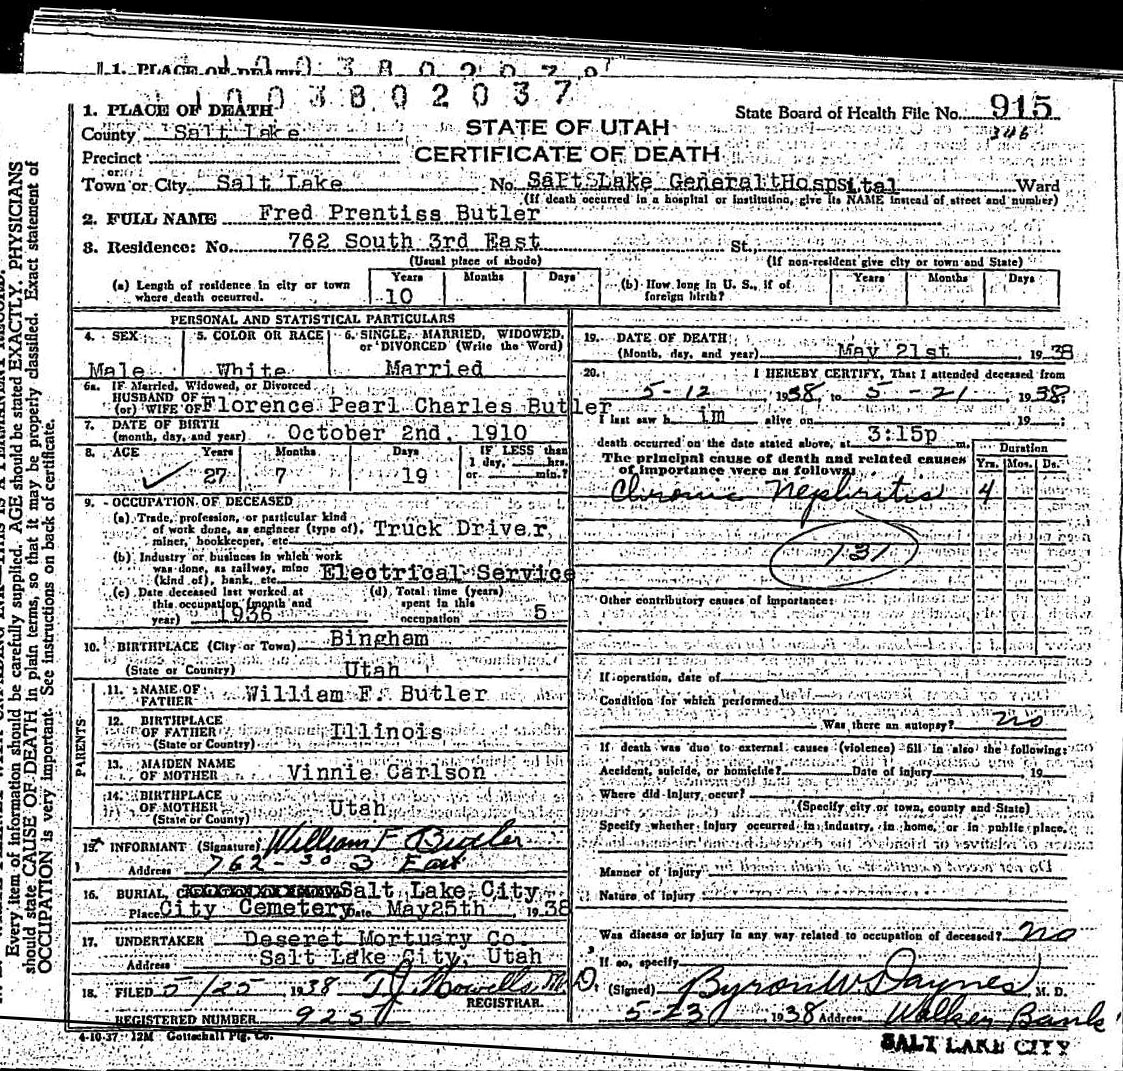 1. PLACE OF DEATH
1003802037
1. PLACE OF DEATH
State Board of Health File No. 915
346
County Salt Lake
STATE OF UTAH
CERTIFICATE OF DEATH
Precinct
or
Town or City Salt Lake No. Salt Lake General Hospital Ward
(If death occurred in a hospital or institution, give its NAME instead of street and number)
2. FULL NAME Fred Prentiss Butler
3. Residence: No. 762 South 3rd East St.
(Usual place of abode) (If non-resident give city or town and State)
(a) Length of residence in city or town where death occurred. Years 10 Months Days
(b) How long in U. S., if of foreign birth? Years Months Days
PERSONAL AND STATISTICAL PARTICULARS
4. SEX 5. COLOR OR RACE 6. SINGLE, MARRIED, WIDOWED, or DIVORCED (Write the Word)
Male White Married
6a. IF Married, Widowed, or Divorced
HUSBAND OF
(or) WIFE OF Florence Pearl Charles Butler
7. DATE OF BIRTH
(month, day, and year) October 2nd, 1910
8. AGE Years Months Days IF LESS than
1 day, hrs.
27 7 19 or min.?
9. OCCUPATION OF DECEASED
(a) Trade, profession, or particular kind
of work done, as engineer (type of), Truck Driver
miner, bookkeeper, etc.
(b) Industry or business in which work
was done, as railway, mine
(kind of), bank, etc. Electrical Service
(c) Date deceased last worked at
this occupation (month and
year) 1936
(d) Total time (years)
spent in this
occupation 5
10. BIRTHPLACE (City or Town) Bingham
(State or Country) Utah
PARENTS
11. NAME OF
FATHER William F. Butler
12. BIRTHPLACE
OF FATHER Illinois
(State or Country)
13. MAIDEN NAME
OF MOTHER Vinnie Carlson
14. BIRTHPLACE
OF MOTHER Utah
(State or Country)
15. INFORMANT (Signature) William F Butler
Address 762 - So 3 East
16. BURIAL, Salt Lake City
Place City Cemetery Date May 25th, 1938
17. UNDERTAKER Deseret Mortuary Co.
Address Salt Lake City, Utah
18. FILED 5/25 1938 T J Howells M.D.
REGISTRAR.
REGISTERED NUMBER 925
4-10-37 12M Gottschall Ptg. Co.
19. DATE OF DEATH
(Month, day, and year) May 21st, 1938
20. I HEREBY CERTIFY, That I attended deceased from
5-12, 1938, to 5-21, 1938.
I last saw h im alive on , 19 ;
death occurred on the date stated above, at 3:15p m.
The principal cause of death and related causes
of importance were as follows:
Duration
Yrs. Mos. Ds.
Chronic Nephritis 4
131
Other contributory causes of importance:
If operation, date of
Condition for which performed
Was there an autopsy? no
If death was due to external causes (violence) fill in also the following:
Accident, suicide, or homicide? Date of injury , 19
Where did injury occur?
(Specify city or town, county and State)
Specify whether injury occurred in industry, in home, or in public place.
Manner of injury
Nature of injury
Was disease or injury in any way related to occupation of deceased? no
If so, specify
(Signed) Byron W. Daynes, M. D.
5-23 1938 Address Walker Bank
SALT LAKE CITY
Every item of information should be carefully supplied. AGE should be stated EXACTLY. PHYSICIANS
should state CAUSE OF DEATH in plain terms, so that it may be properly classified. Exact statement of
OCCUPATION is very important. See instructions on back of certificate.